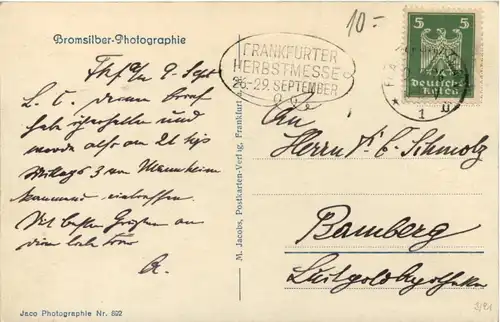 Bromsilber-Photographie
10=
FRANKFURTER
HERBSTMESSE
26.-29. SEPTEMBER
5 5
Deutsches
Reich
* 1 ü
Ffm 9. Sept
L. C. deinen Brief
habe erhalten und
werde also am 21
Mittags 3 von Mannheim
kommend eintreffen.
Mit besten Grüßen an
deine liebe Frau
An
Herrn Dr. C. Schmolz
Bamberg
Luitpoldapotheke
M. Jacobs, Postkarten-Verlag, Frankfurt a.
Jaco Photographie Nr. 692